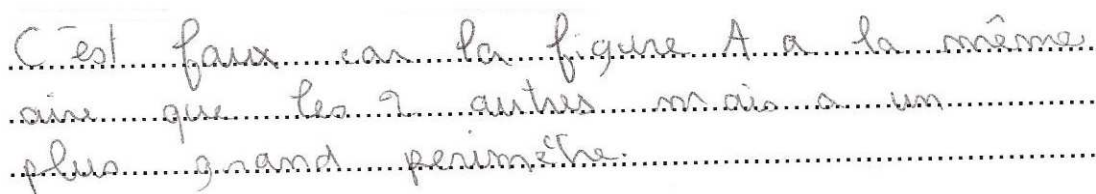 C'est faux car la figure A a la même
aire que les 2 autres mais a un
plus grand perimètre.